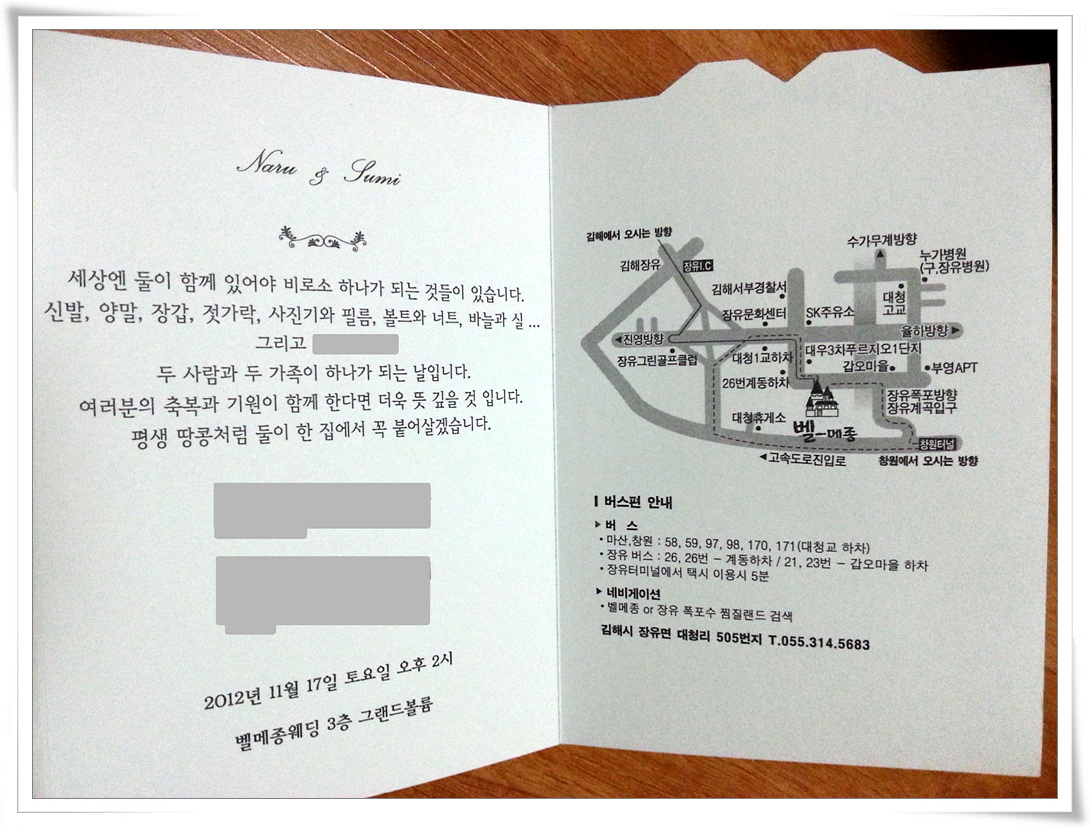 Naru & Sumi
세상엔 둘이 함께 있어야 비로소 하나가 되는 것들이 있습니다.
신발, 양말, 장갑, 젓가락, 사진기와 필름, 볼트와 너트, 바늘과 실 ...
그리고
두 사람과 두 가족이 하나가 되는 날입니다.
여러분의 축복과 기원이 함께 한다면 더욱 뜻 깊을 것 입니다.
평생 땅콩처럼 둘이 한 집에서 꼭 붙어살겠습니다.
2012년 11월 17일 토요일 오후 2시
벨메종웨딩 3층 그랜드볼륨
김해에서 오시는 방향
김해장유
장유I.C
수가무계방향
누가병원
(구,장유병원)
김해서부경찰서
대청
고교
장유문화센터
SK주유소
율하방향
진영방향
장유그린골프클럽
대청1교하차
대우3차푸르지오1단지
갑오마을
부영APT
26번계동하차
장유폭포방향
장유계곡입구
대청휴게소
벨-메종
창원터널
고속도로진입로
창원에서 오시는 방향
버스편 안내
버 스
• 마산,창원 : 58, 59, 97, 98, 170, 171(대청교 하차)
• 장유 버스 : 26, 26번 – 계동하차 / 21, 23번 – 갑오마을 하차
• 장유터미널에서 택시 이용시 5분
네비게이션
• 벨메종 or 장유 폭포수 찜질랜드 검색
김해시 장유면 대청리 505번지 T.055.314.5683